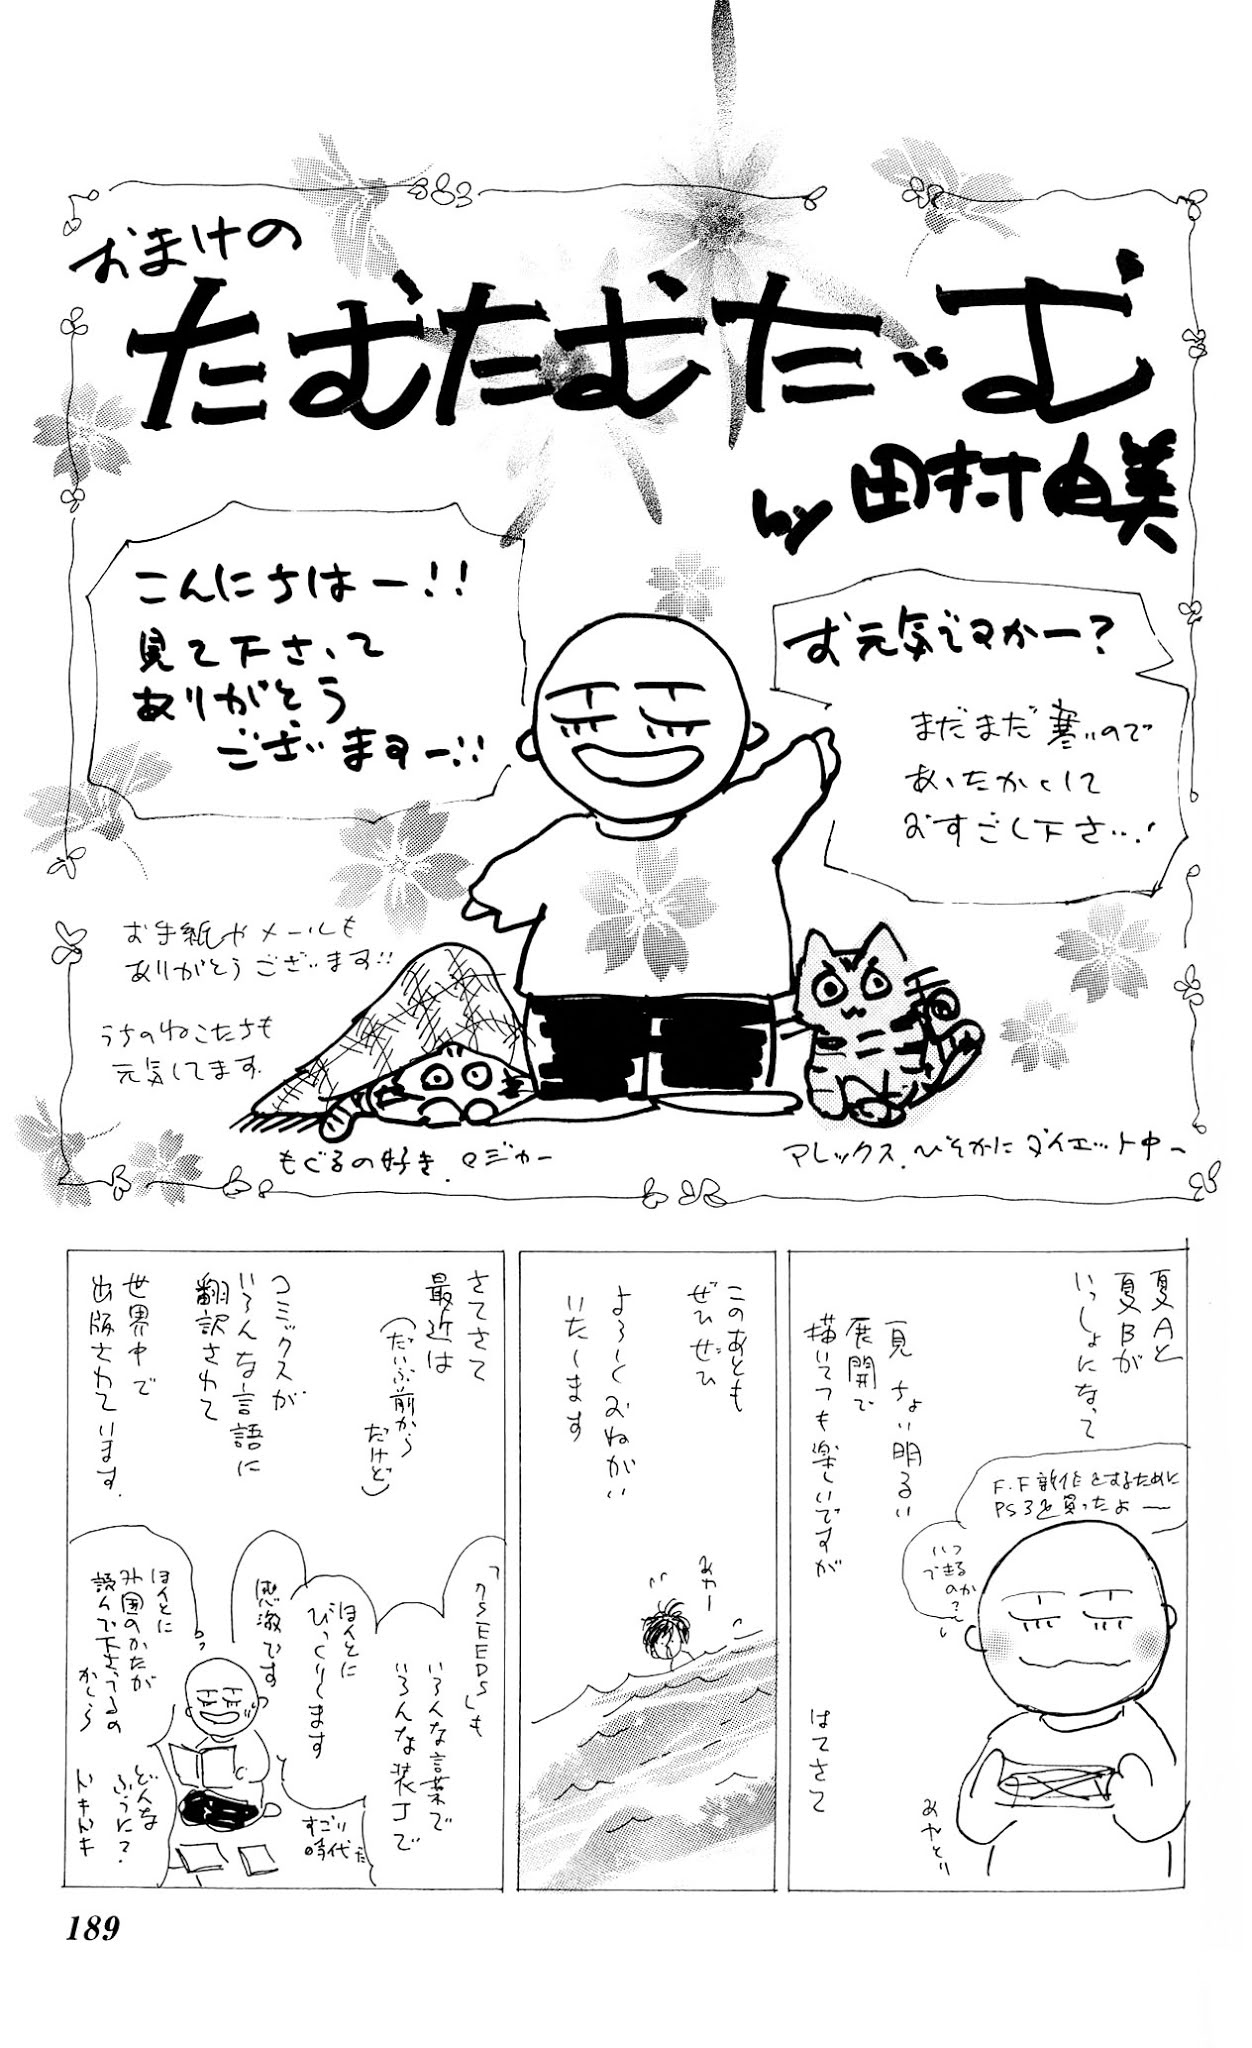 おまけの
たむたむたいむ
by 田村由美
こんにちはー!!
見て下さって
ありがとう
ございますー!!
お元気ですかー?
まだまだ寒いので
あったかくして
おすごし下さい!
お手紙やメールも
ありがとうございます!!
うちのねこたちも
元気してます
もぐるの好き、ロジャー
アレックス、ひそかにダイエット中ー
夏Aと
夏Bが
いっしょになって
一見 ちょい明るい
展開で
描いてても楽しいですが
はてさて
F.F新作をするために
PS3を買ったよー
いつ
できる
のか?
あやとり
このあとも
ぜひぜひ
よろしくおねがい
いたします
あわー
さてさて
最近は
(だいぶ前から
だけど)
コミックスが
いろんな言語に
翻訳されて
世界中で
出版されています.
「7SEEDS」も
いろんな言葉で
いろんな装丁で
ほんとに
びっくりします
感激です
すごい
時代だ
ほんとに
外国のかたが
読んで下さってるの
かしら
どんな
ふうに?
ドキドキ
189